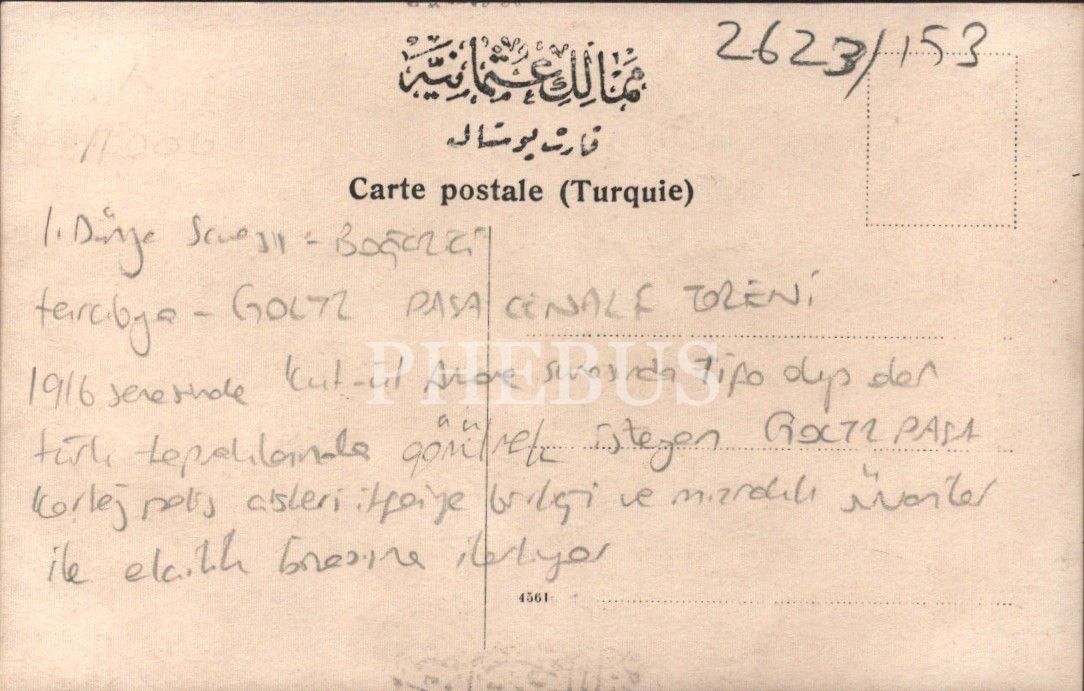 2623/153
ممالك عثمانيه
قارت پوستال
Carte postale (Turquie)
1. Dünya Savaşı - BOĞAZİÇİ
tarabya - GOLTZ PAŞA CENAZE TÖRENİ
1916 senesinde Kut-ül Amare sırasında tifo olup ölen
türk topraklarında gömülmek isteyen GOLTZ PAŞA
Kortej polis askeri itfaiye birliği ve mızraklı süvariler
ile elçilik binasına ilerliyor
4561
PHEBUS